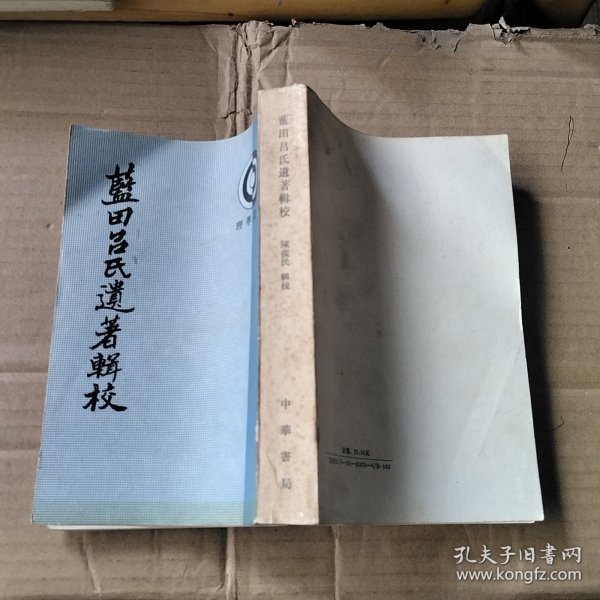 藍田呂氏遺著輯校
理學
藍田呂氏遺著輯校
陳俊民 輯校
中華書局
孔夫子旧书网
www.kongfz.com